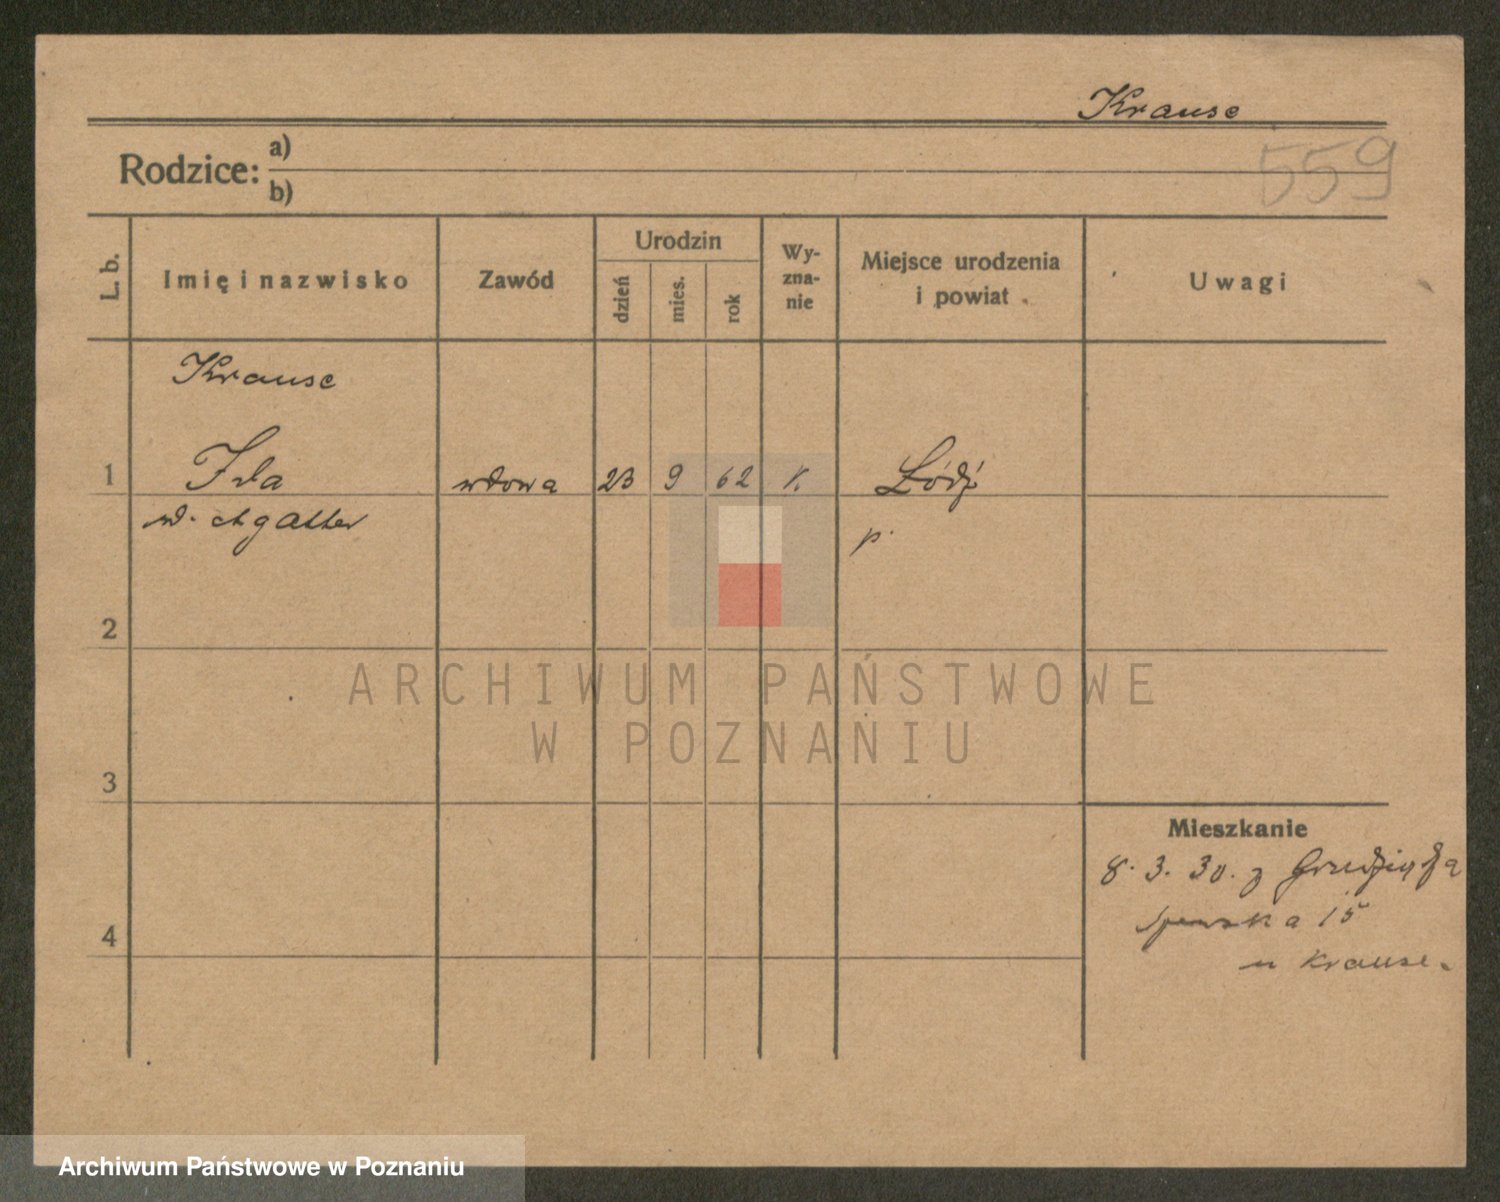 Krause
559
Rodzice: a)
b)
L. b.
Imię i nazwisko
Zawód
Urodzin
dzień
mies.
rok
Wy-
zna-
nie
Miejsce urodzenia
i powiat
Uwagi
Krause
1 Ida wdowa 23 9 62 k. Łódź
p.
2
3
4
Mieszkanie
8. 3. 30. z
15
u Krause.
ARCHIWUM PAŃSTWOWE
W POZNANIU
Archiwum Państwowe w Poznaniu